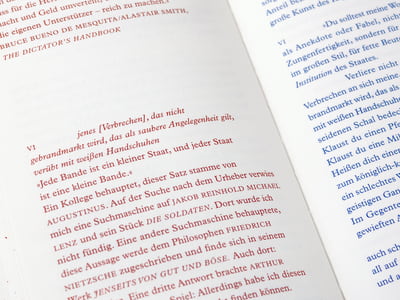 ss für die He
nacht und Geld unverteilt
die eigenen Unterstützer – reich zu machen.«
BRUCE BUENO DE MESQUITA/ALASTAIR SMITH,
THE DICTATOR'S HANDBOOK
VI jenes [Verbrechen], das nicht
gebrandmarkt wird, das als saubere Angelegenheit gilt,
verübt mit weißen Handschuhen
»Jede Bande ist ein kleiner Staat, und jeder Staat
ist eine kleine Bande.«
Ein Kollege behauptet, dieser Satz stamme von
AUGUSTINUS. Auf der Suche nach dem Urheber verwies
mich eine Suchmaschine auf JAKOB REINHOLD MICHAEL
LENZ und sein Stück DIE SOLDATEN. Dort wurde ich
nicht fündig. Eine andere Suchmaschine behauptete,
diese Aussage werde dem Philosophen FRIEDRICH
NIETZSCHE zugeschrieben und finde sich in seinem
Werk JENSEITS VON GUT UND BÖSE. Auch dort:
Eine dritte Antwort brachte ARTHUR
Spiel: Allerdings habe ich diesen
finden können.
Anteil
große Kunst des
VI »Du solltest meine
als Anekdote oder Fabel, nich
Zungenfertigkeit, sondern für
im großen Stil, für fette Beute
Institution des Staates.
Verliere nicht
Verbrechen an sich meine
brandmarkt wird, das als
mit weißen Handschuhe
seidenen Schal bedeckt
Klaust du einen Pf
Klaust du eine Mi
Heißen dich eine
zum königlich-k
ein schlechtes W
geistigen Gan
Im Gegente
gewieften A
auch sch
all auf
und al